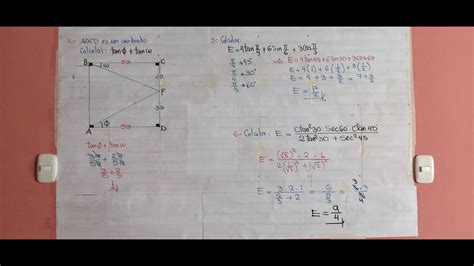 4.- ABCD es un cuadrado.
Calcular: tanϕ + tanω
B
ω
5a
C
F
A
ϕ
5a
D
tanϕ + tanω
5.- Calcular:
E = 4tan π/4 + 6sin π/6 + 3cos π/3
π/4 = 45°
π/6 = 30°
π/3 = 60°
⇒ E = 4tan45 + 6sin30 + 3cos60
E = 4(1) + 6(1/2) + 3(1/2)
E = 4 + 3 + 3/2 = 7 + 3/2
E = 17/2
6.- Calcular: E = ctan²30 · Sec60 · Ctan45 / 2tan²30 + Sec²45
E = (√3)² · 2 · 1 / 2(1/√3)² + (√2)²
E = 3·2·1 / 2/3 + 2 = 6 / 8/3
E = 9/4